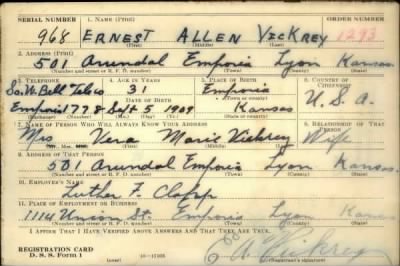 SERIAL NUMBER 1. NAME (Print) ORDER NUMBER
968 ERNEST ALLEN VICKREY 1293
(First) (Middle) (Last)
2. ADDRESS (Print)
501 Arundal Emporia Lyon Kansas.
(Number and street or R. F. D. number) (Town) (County) (State)
3. TELEPHONE 4. AGE IN YEARS 5. PLACE OF BIRTH 6. COUNTRY OF CITIZENSHIP
So. W. Bell Telco 31 Emporia
DATE OF BIRTH U.S.A.
Emporia 778 Sept 5 1909 Kansas
7. NAME OF PERSON WHO WILL ALWAYS KNOW YOUR ADDRESS 8. RELATIONSHIP OF THAT PERSON
Mrs Vera Marie Vickrey Wife
(Mr., Mrs., Miss) (First) (Middle) (Last)
9. ADDRESS OF THAT PERSON
501 Arundal Emporia Lyon Kansas.
(Number and street or R. F. D. number) (Town) (County) (State)
10. EMPLOYER'S NAME
Luther F.
11. PLACE OF EMPLOYMENT OR BUSINESS
1114 Union St. Emporia Lyon Kansas
(Number and street or R. F. D. number) (Town) (County) (State)
I AFFIRM THAT I HAVE VERIFIED ABOVE ANSWERS AND THAT THEY ARE TRUE.
REGISTRATION CARD
D. S. S. Form 1 (over) 16-17105 E A Vickrey
(Registrant's signature)